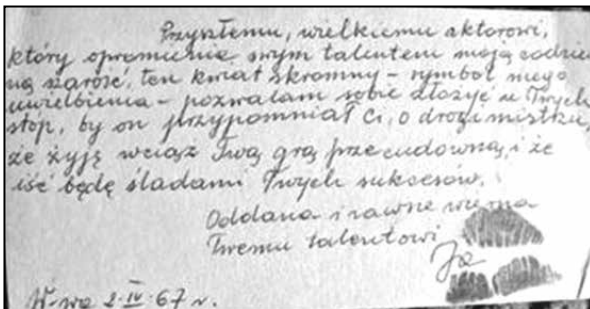 Przyszłemu, wielkiemu aktorowi,
który opromienia swym talentem moją codzien
ną szarość, ten kwiat skromny - symbol mego
uwielbienia - pozwalam sobie złożyć u Twych
stóp, by on przypomniał Ci, o drogi mistrzu,
że żyję wciąż Twą grą przecudowną, i że
iść będę śladami Twych sukcesów.
Oddana i zawsze wierna
Twemu talentowi
Ja
W-wa 2.IV.67 r.